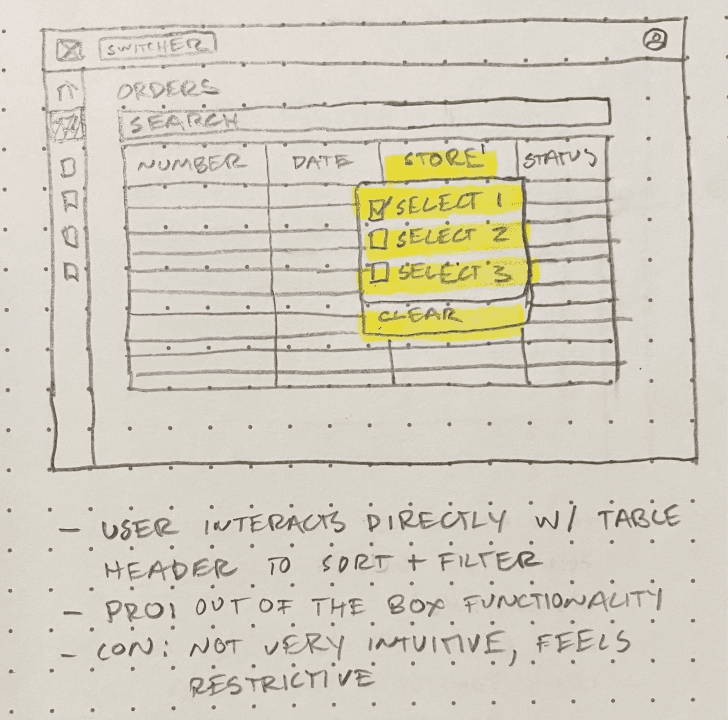 SWITCHER
ORDERS
SEARCH
NUMBER DATE STORE STATUS
SELECT 1
SELECT 2
SELECT 3
CLEAR
- USER INTERACTS DIRECTLY W/ TABLE
HEADER TO SORT + FILTER
- PRO: OUT OF THE BOX FUNCTIONALITY
- CON: NOT VERY INTUITIVE, FEELS
RESTRICTIVE